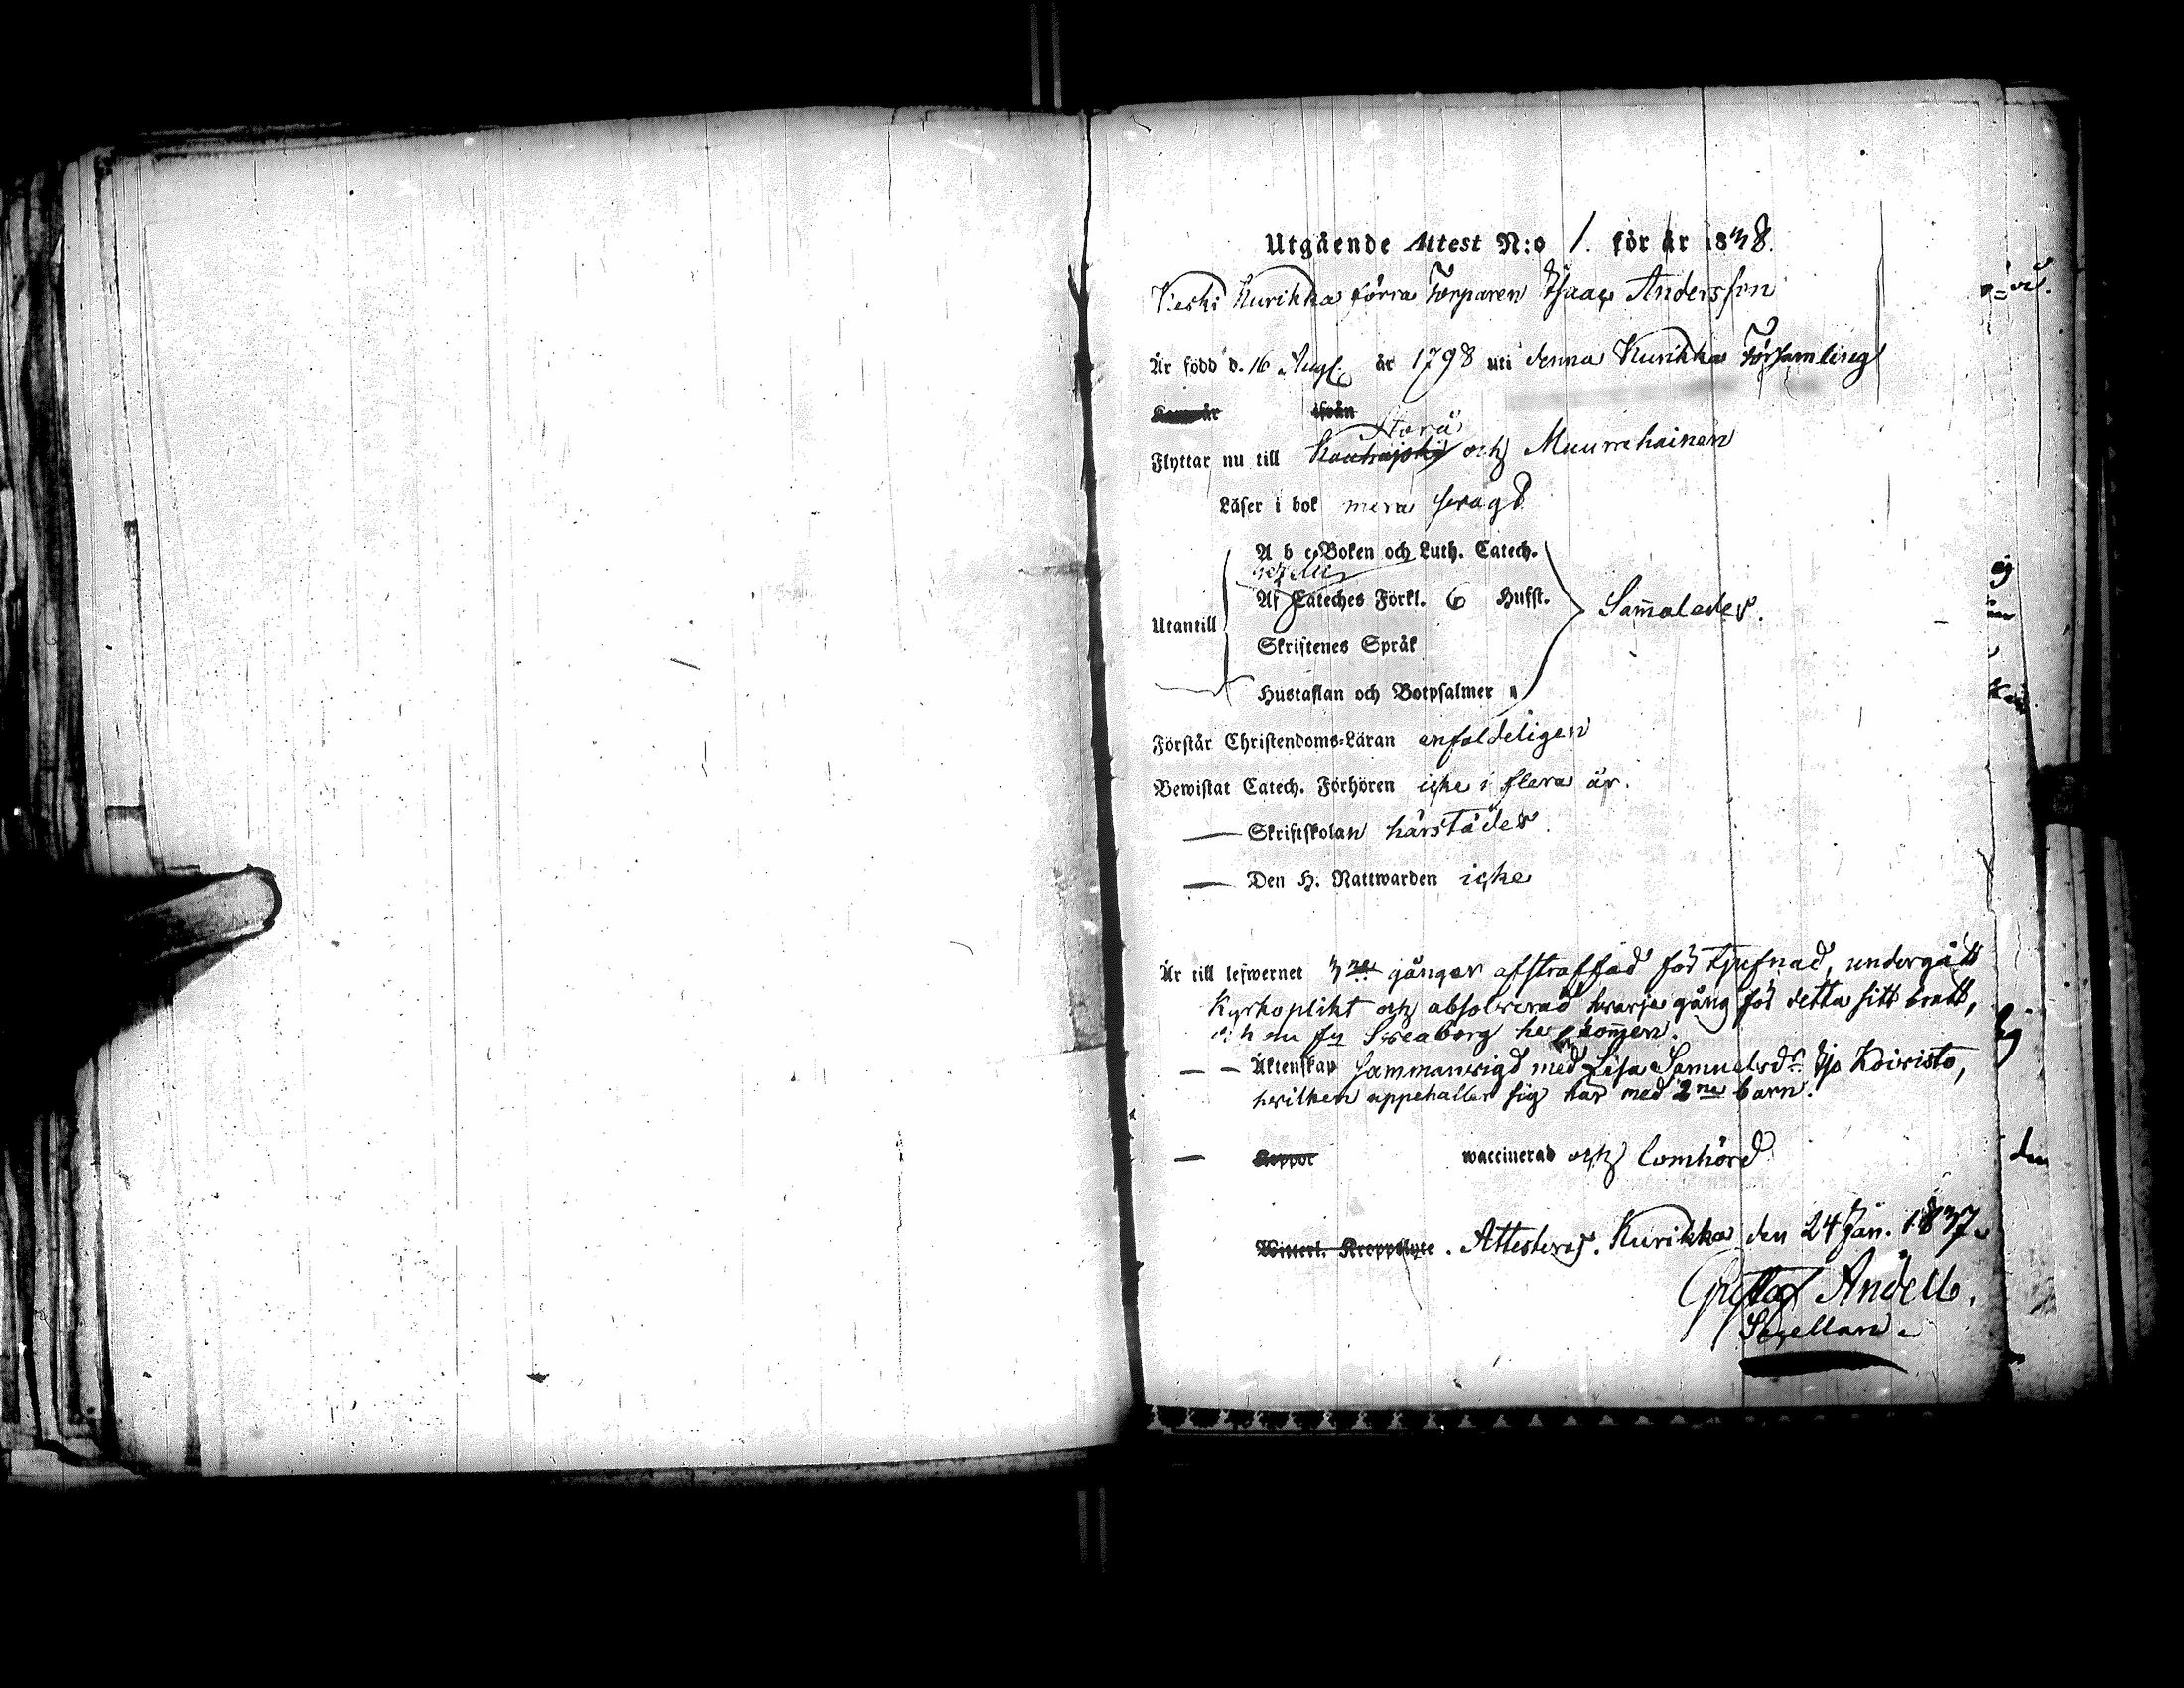 Utgående Attest N:o 1. för år 1838.
Keski Kurikka förra Torparen Isaac Andersson
Är född d. 16 Aug. år 1798 uti denna Kurikka Församling
ifrån
Storå
Flyttar nu till Kauhajoki och Muurrhainen
Läser i bok mera svagt
A b c Boken och Luth. Catech.
Af Cateches Förkl. 6 Hufst.
Utantill Sam̄alades.
Skriftenes Språk
Hustaflan och Botpsalmer
Förstår Christendoms-Läran enfaldeligen
Bewistat Catech. Förhören icke i flera år.
— Skriftskolan härstädes.
— Den H. Nattwarden icke
Är till lefwernet 3ne gånger afstraffad för tjufnad, undergått
Kyrkoplikt och absolverad hvarje gång för detta sitt brott,
och nu fr Sveaborg hem kom̄en.
— — Äktenskap sammanvigd med Lisa Samuelsdr Koivisto,
hvilken uppehaller sig här med 2ne barn.
— Koppor waccinerad och lomhörd
Witterl. Kroppslyte. Attesteras. Kurikka den 24 Jan. 1837.
Gustaf Andell.
Sacellan.